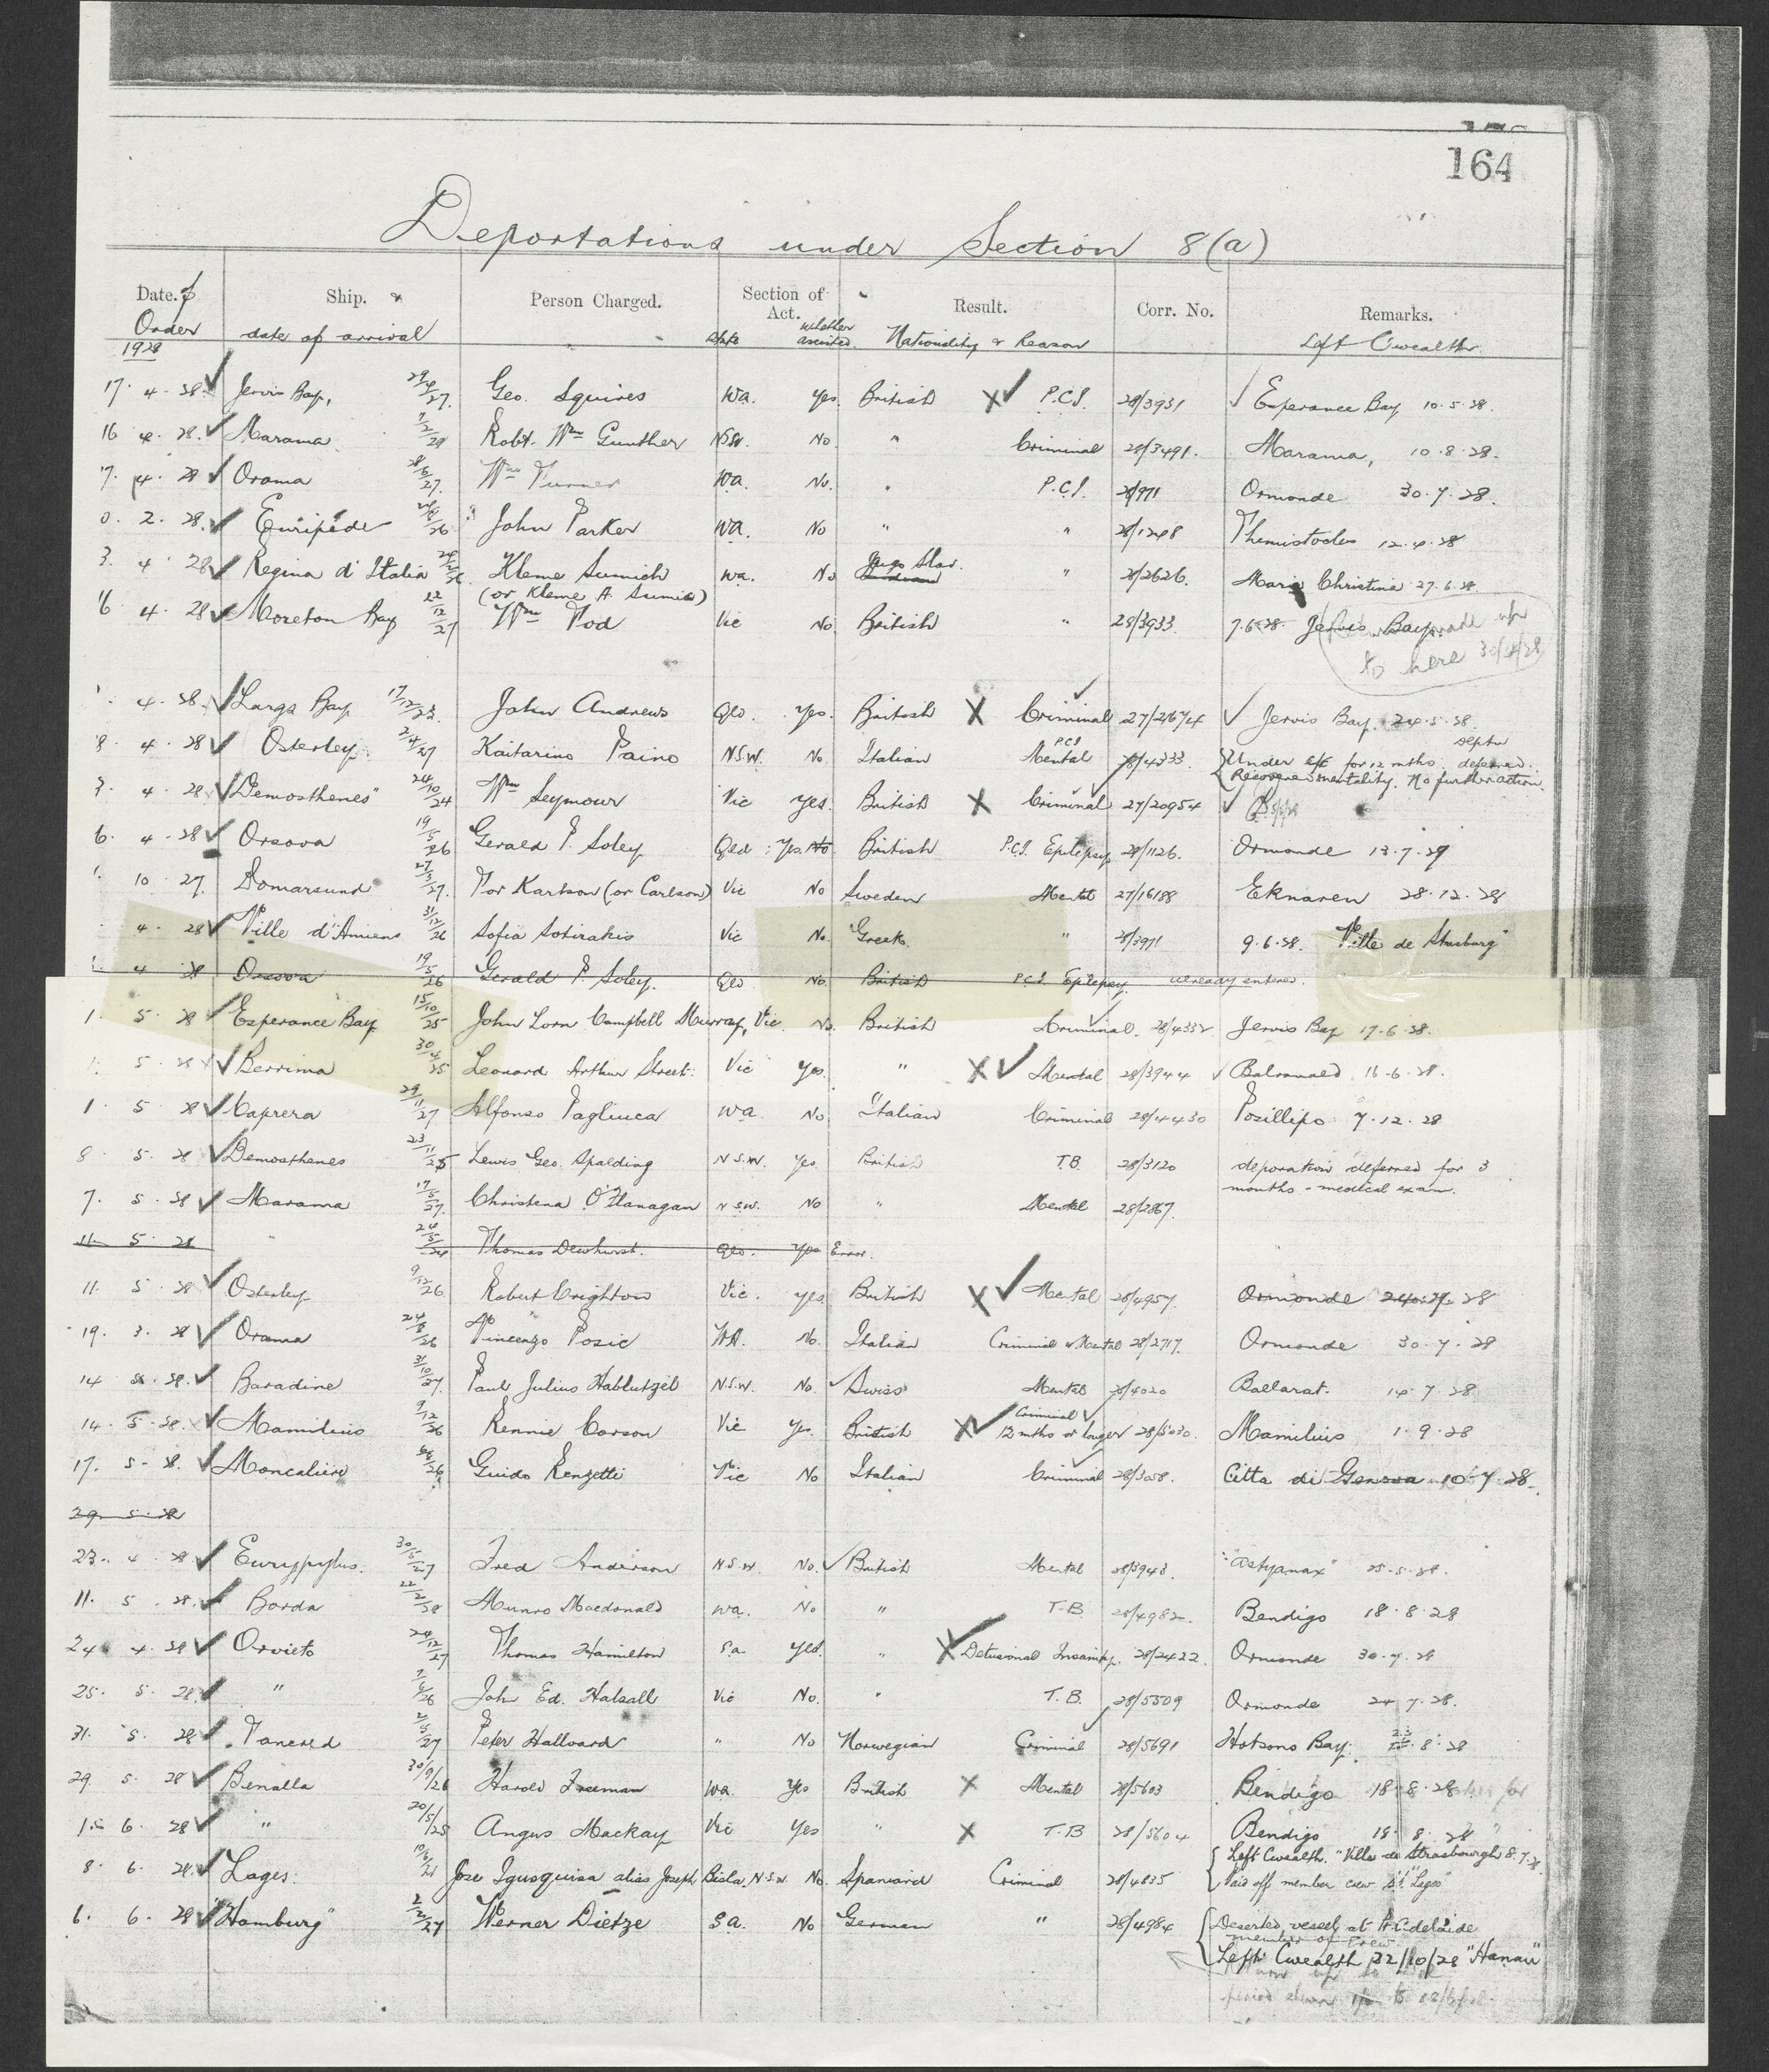 164
Deportations under Section 8(a)
Date. of Ship. & Person Charged. Section of Act. Result. Corr. No. Remarks.
Order date of arrival State whether assisted. Nationality & Reason Left C'wealth
1928
17. 4. 28. Jervis Bay, 27. Geo. Squires W.a. Yes. British X P.C.I. 28/3931 Esperance Bay 10.5.28.
16 4. 28. Marama Robt. Wm Gunther NSW. No. " Criminal 28/3491. Marama, 10.8.28.
7. 4. 28 Orama 27. Wm Turner W.a. No. " P.C.I. 28/971 Ormonde 30.7.28.
0. 2. 28. Euripide 26 John Parker W.a. No " " 28/1248 Themistocles 12.4.28
3. 4. 28 Regina d'Italia Kleme Sumich W.a. No Jugo Slav. " 28/2626. Maria Christina 27.6.28.
(or Kleme A. Sumich)
16. 4. 28 Moreton Bay 22/12/27 Wm Tod Vic No. British " 28/3933. 7.6.28. Jervis Bay
made up to here 30/4/28
4. 28. Largs Bay 17/12/23. John Andrews Qld. Yes. British X Criminal 27/21674 Jervis Bay. 24.5.28.
8. 4. 28 Osterley. 2/4/27 Kaitarino Paino N.S.W. No. Italian P.C.I. Mental 28/4333 Under for 12 mths. deptn deferred.
Recovered mentality. No further action.
3. 4. 28 "Demosthenes" 24/10/24 Wm Seymour Vic Yes. British X Criminal 27/20954
6. 4. 28 Orsova 19/5/26 Gerald P. Soley Qld Yes. No. British P.C.I. Epilepsy 28/1126. Ormonde 13.7.29
1. 10. 27. Domarsund 27/3/27. Tor Karlson (or Carlson) Vic No Sweden Mental 27/16188 Eknaren 28.12.28
4. 28 Ville d'Amiens 31/12/26 Sofia Sotirakis Vic No. Greek. " 28/3971 9.6.28. "Ville de Strasburg"
4 28 Orsova 19/5/26 Gerald P. Soley. Qld No. British P.C.I. Epilepsy. already entered.
1. 5. 28 Esperance Bay 15/10/25 John Lorn Campbell Murray, Vic. No. British Criminal. 28/4332 Jervis Bay 17.6.28.
5. 28 Berrima 30/4/25 Leonard Arthur Street. Vic Yes. " X Mental 28/3944 Balranald 16.6.28.
1. 5. 28 Caprera 29/11/27 Alfonso Pagliuca W.a. No. Italian Criminal 28/4430 Posillipo 7.12.28
8. 5. 28 Demosthenes 23/11/25 Lewis Geo. Spalding N.S.W. Yes. British T.B. 28/3120 deportation deferred for 3
months - medical exam.
7. 5. 28 Marama 17/5/27. Christena O'Flanagan N.S.W. No " Mental 28/2867.
11. 5. 28 " Thomas Dewhurst. Qld. Yes Error.
11. 5. 28 Osterley 9/12/26. Robert Crighton Vic. Yes. British X Mental 28/4957. Ormonde 24.7.28
19. 3. 28 Orama 24/8/26 Vincenzo Posic W.A. No. Italian Criminal & Mental 28/2717. Ormonde 30.7.28
14 5. 28. Baradine 31/10/27. Paul Julius Hablutzel N.S.W. No. Swiss Mental 28/4020 Ballarat. 14.7.28
14. 5. 28. Mamilius 9/12/26 Rennie Corson Vic Yes. British X Criminal 12 mths or longer 28/5030. Mamilius 1.9.28
17. 5. 28. Moncalieri Guido Renzetti Vic No Italian Criminal 28/3058. Citta di Genova 10.7.28.
29 5. 28
23. 4. 28 Eurypylus. 30/5/27 Fred Anderson N.S.W. No. British Mental 28/3943. "Astyanax" 25.5.28.
11. 5. 28. Borda 22/2/28 Munro Macdonald W.a. No " T.B. 28/4982. Bendigo 18.8.28
24 4. 28 Orvieto 24/12/27 Thomas Hamilton S.a. Yes. " X Delusional Insanity. 28/2422. Ormonde 30.7.28
25. 5. 28. " John Ed. Halsall Vic No. " T.B. 28/5509 Ormonde 24.7.28.
31. 5. 28 Tancred 2/5/27 Peter Hallvard " No Norwegian Criminal 28/5691 Hobsons Bay. 8.28
29. 5. 28 Benalla 30/9/26 Harold Freeman W.a. Yes British X Mental 28/5603 Bendigo 18.8.28
15 6. 28 " 20/5/25 Angus Mackay Vic Yes " X T.B 28/5604 Bendigo 18.8.28
8. 6. 28. Lages. Jose Igusquisa alias Joseph Biola. N.S.W. No. Spaniard Criminal 28/4835 Left C'wealth. "Ville de Strasbourgh 8.7.28.
Paid off member crew S.S. "Lages"
6. 6. 28 "Hamburg" Werner Dietze S.a. No German " 28/4984 Deserted vessel at Pt. Adelaide
member of crew.
Left C'wealth 22/10/28 "Hanau"